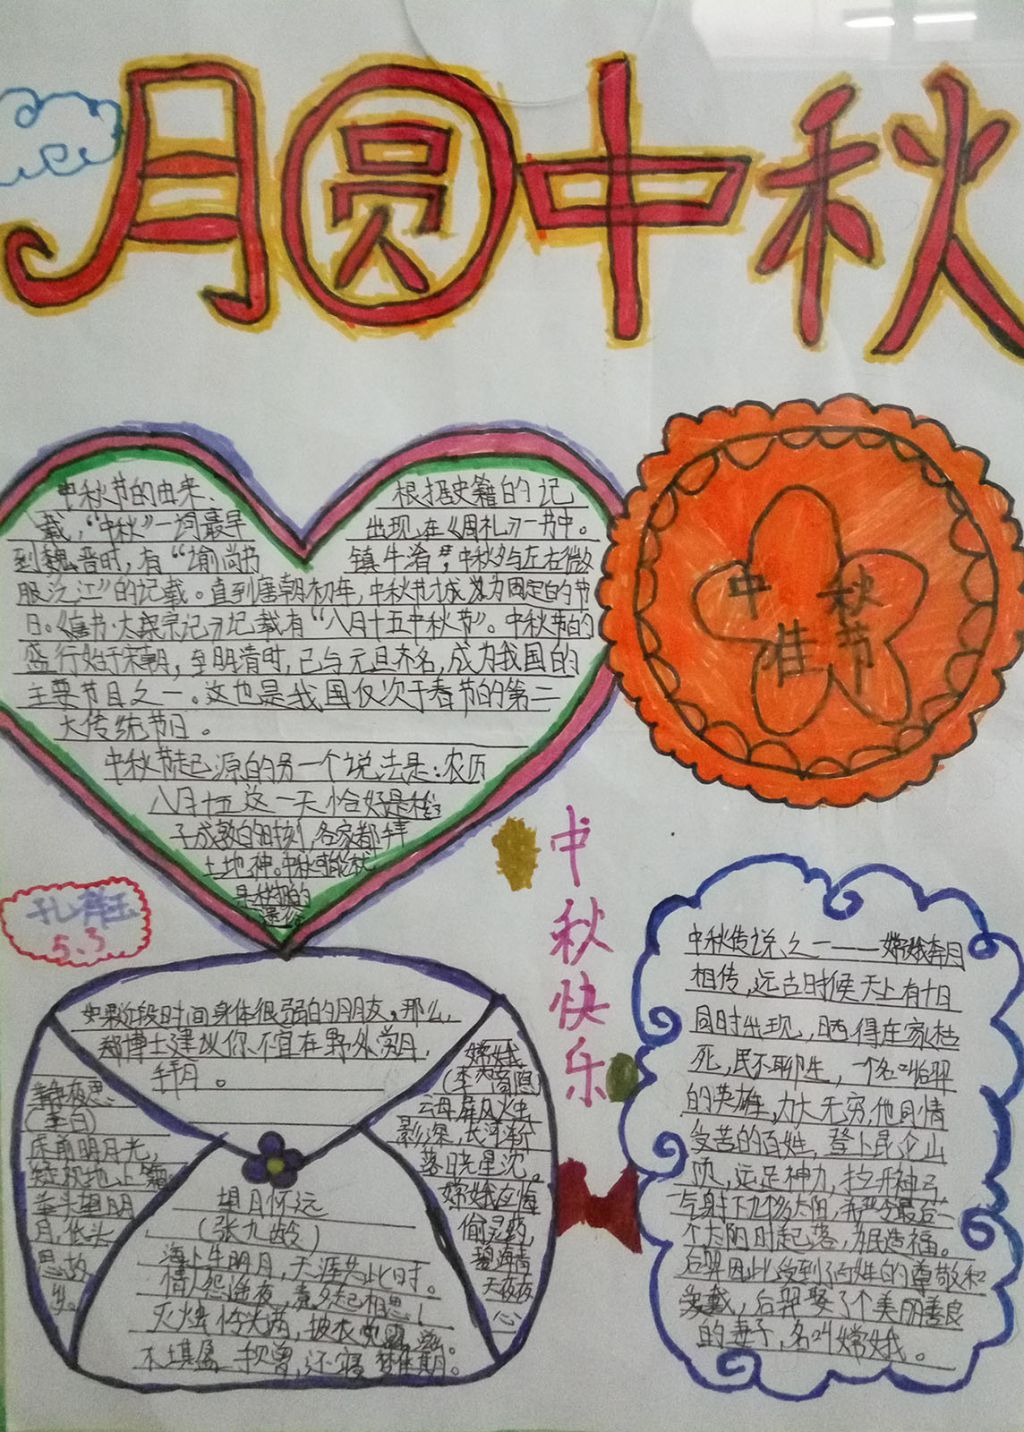 月圆中秋
中秋节的由来、根据史籍的记
载，“中秋”一词最早出现在《周礼》一书中。
到魏晋时，有“谕尚书镇牛渚，中秋夕与左右微
服泛江”的记载。直到唐朝初年，中秋节才成为固定的节
日。《唐书·太宗记》记载有“八月十五中秋节”。中秋节的
盛行始于宋朝，至明清时，已与元旦齐名，成为我国的
主要节日之一。这也是我国仅次于春节的第二
大传统节日。
中秋节起源的另一个说法是：农历
八月十五这一天恰好是稻
子成熟的时刻，各家都拜
土地神。中秋可能就
是秋报的
遗俗
中秋
佳节
中秋快乐
5.3
如果近段时间身体很弱的朋友。那么，
郑博士建议你不宜在野外赏月，
拜月。
静夜思
（李白）
床前明月光，
疑似地上霜。
举头望明
月，低头
思故
乡。
嫦娥
（李商隐）
云母屏风烛
影深，长河渐
落晓星沉。
嫦娥应悔
偷灵药，
碧海青
天夜夜
心
望月怀远
（张九龄）
海上生明月，天涯共此时。
情人怨遥夜，竟夕起相思！
灭烛怜光满，披衣觉露滋。
不堪盈手赠，还寝梦佳期。
中秋传说之一——嫦娥奔月
相传，远古时候天上有十日
同时出现，晒得庄家枯
死，民不聊生，一个名叫后羿
的英雄，力大无穷，他同情
受苦的百姓，登上昆仑山
顶，运足神力，拉开神弓
气射下九个多太阳，并严令最后一
个太阳时起落，为民造福。
后羿因此受到百姓的尊敬和
爱戴，后羿娶了个美丽善良
的妻子，名叫嫦娥。